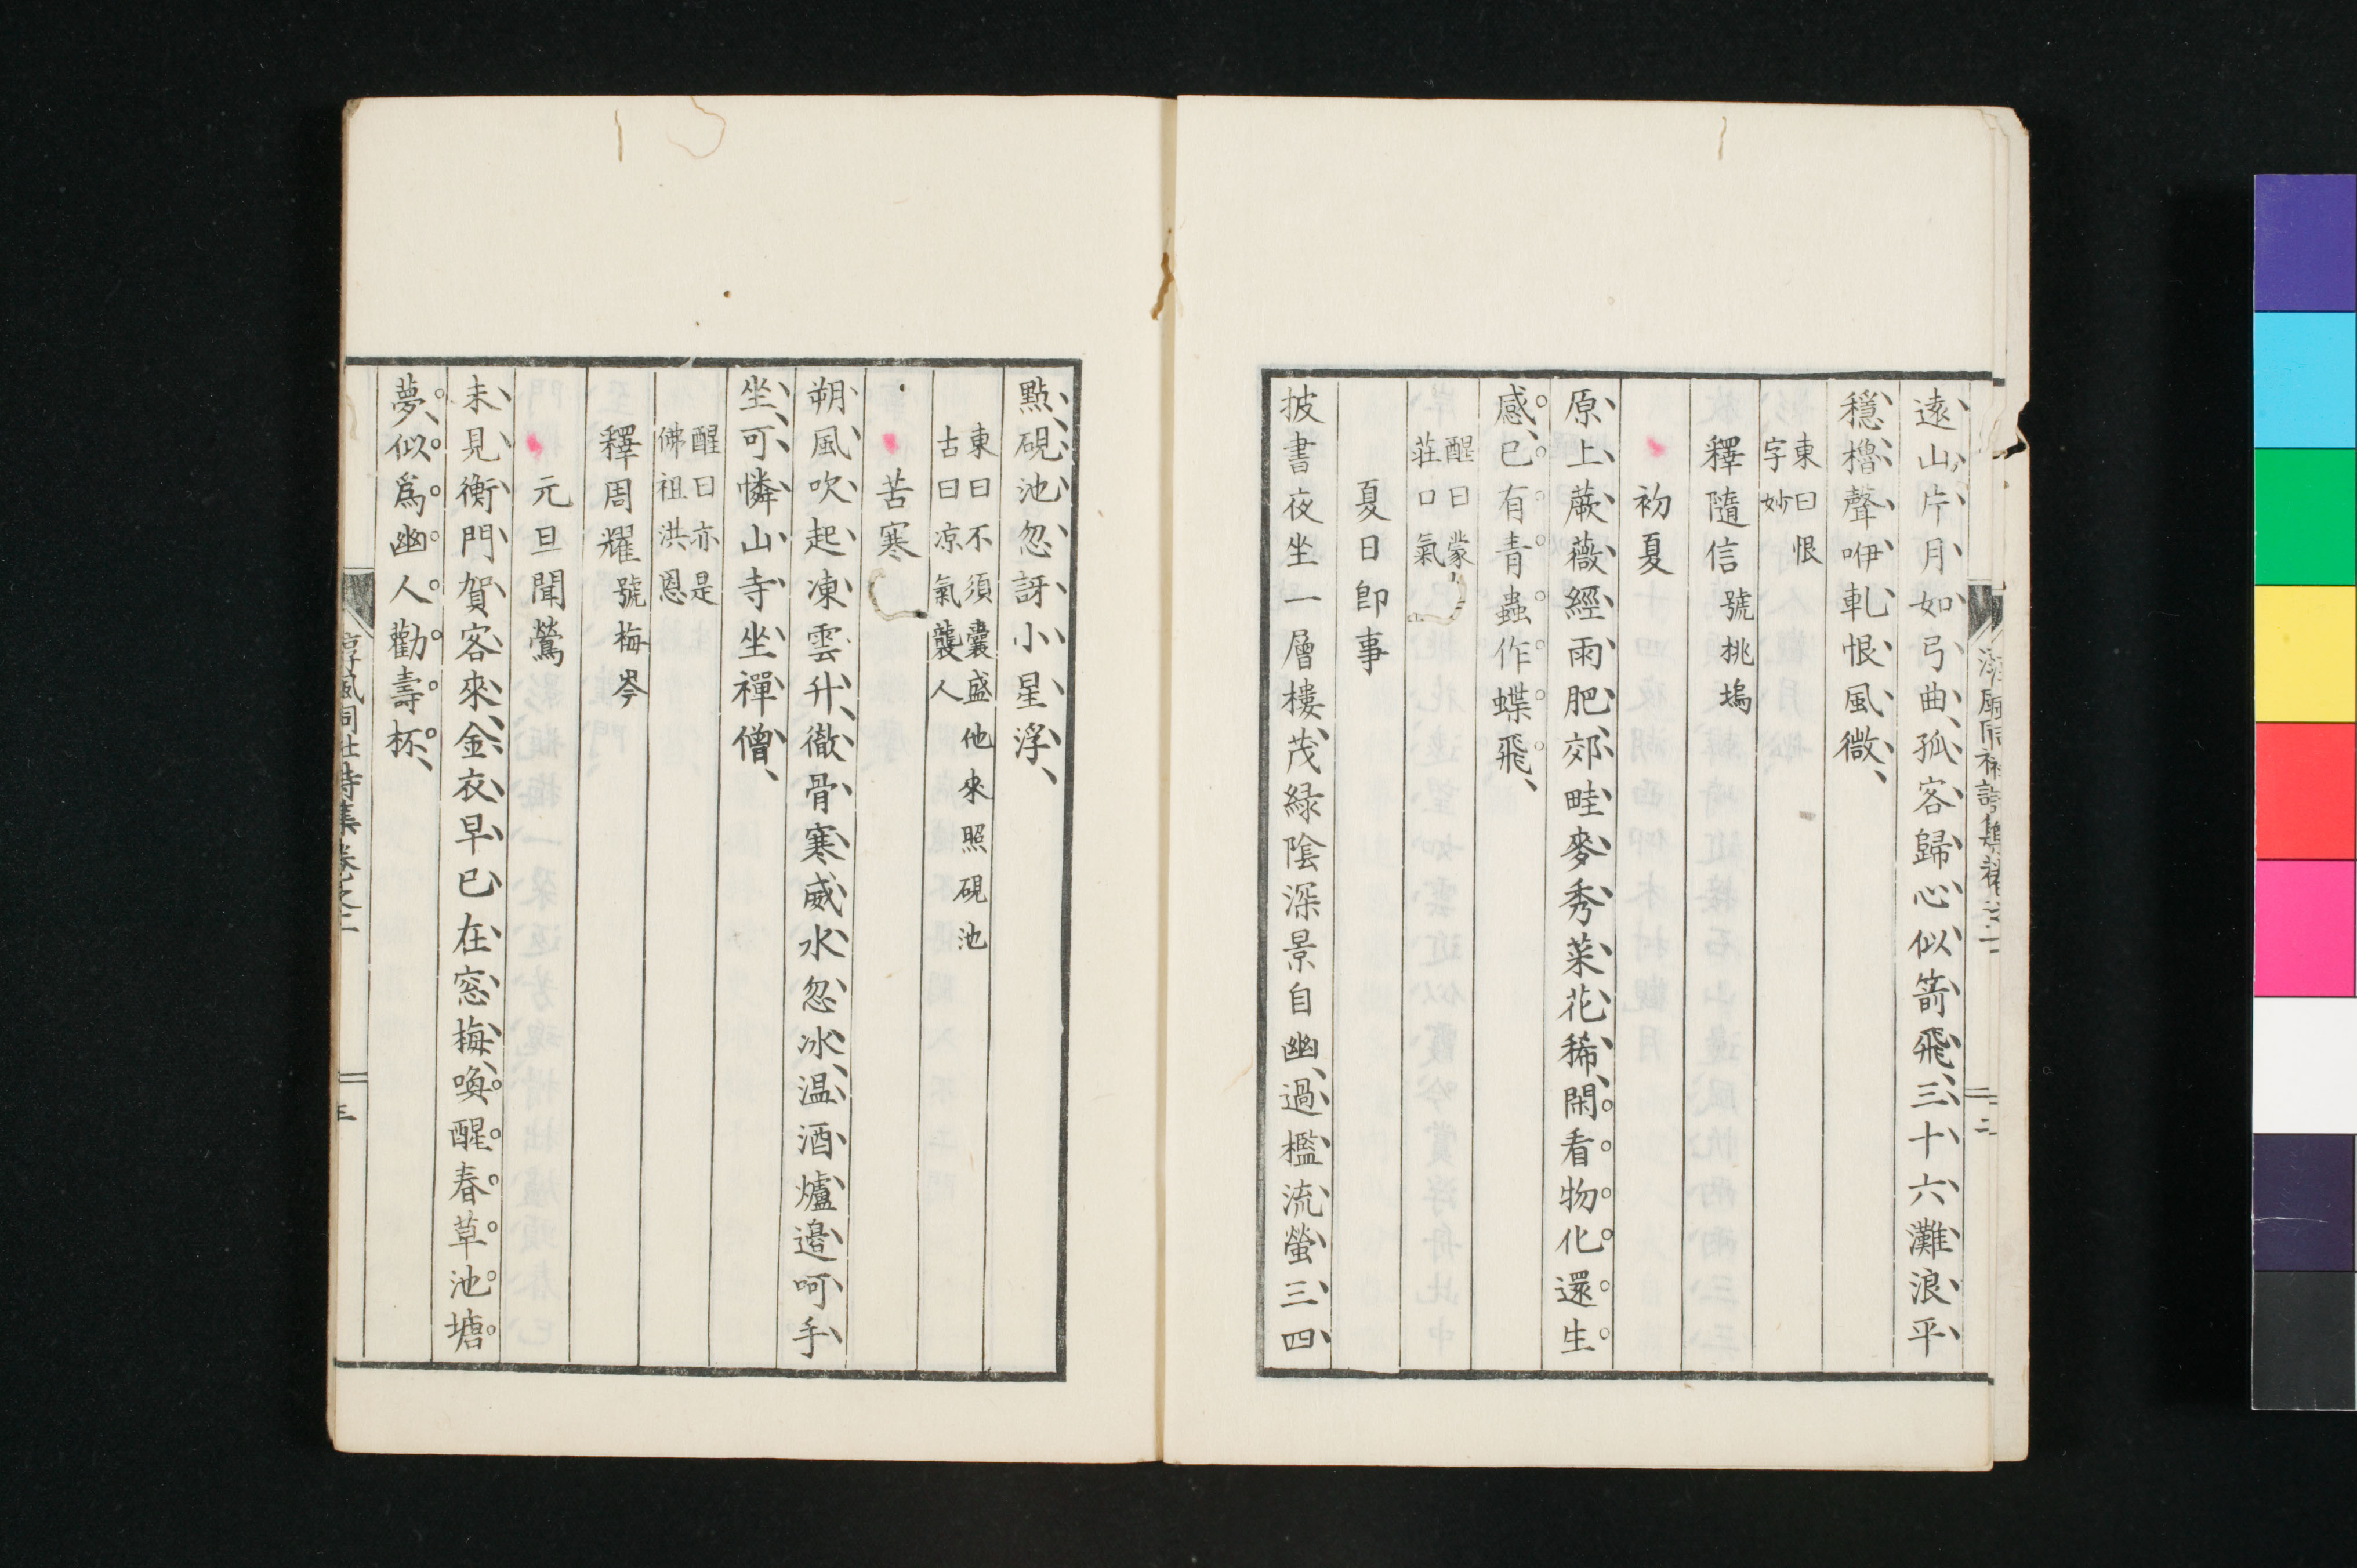 遠山片月如弓曲、孤客歸心似箭飛、三十六灘浪平
穩、櫓聲咿軋恨風微、
東曰恨
字妙
釋隨信號桃塢
初夏
原上蕨薇經雨肥、郊畦麥秀菜花稀、閑看物化還生
感、已有青蟲作蝶飛、
醒曰蒙
莊口氣
夏日卽事
披書夜坐一層樓、茂綠陰深景自幽、過檻流螢三四
點、硯池忽訝小星浮、
東曰不須囊盛他來照硯池
古曰凉氣襲人
苦寒
朔風吹起凍雲升、徹骨寒威水忽冰、温酒爐邊呵手
坐、可憐山寺坐禪僧、
醒曰亦是
佛祖洪恩
釋周耀號梅岑
元旦聞鶯
未見衡門賀客來、金衣早已在窓梅、喚醒春草池塘
夢、似爲幽人勸壽杯、
淳風同社詩集卷之二
三